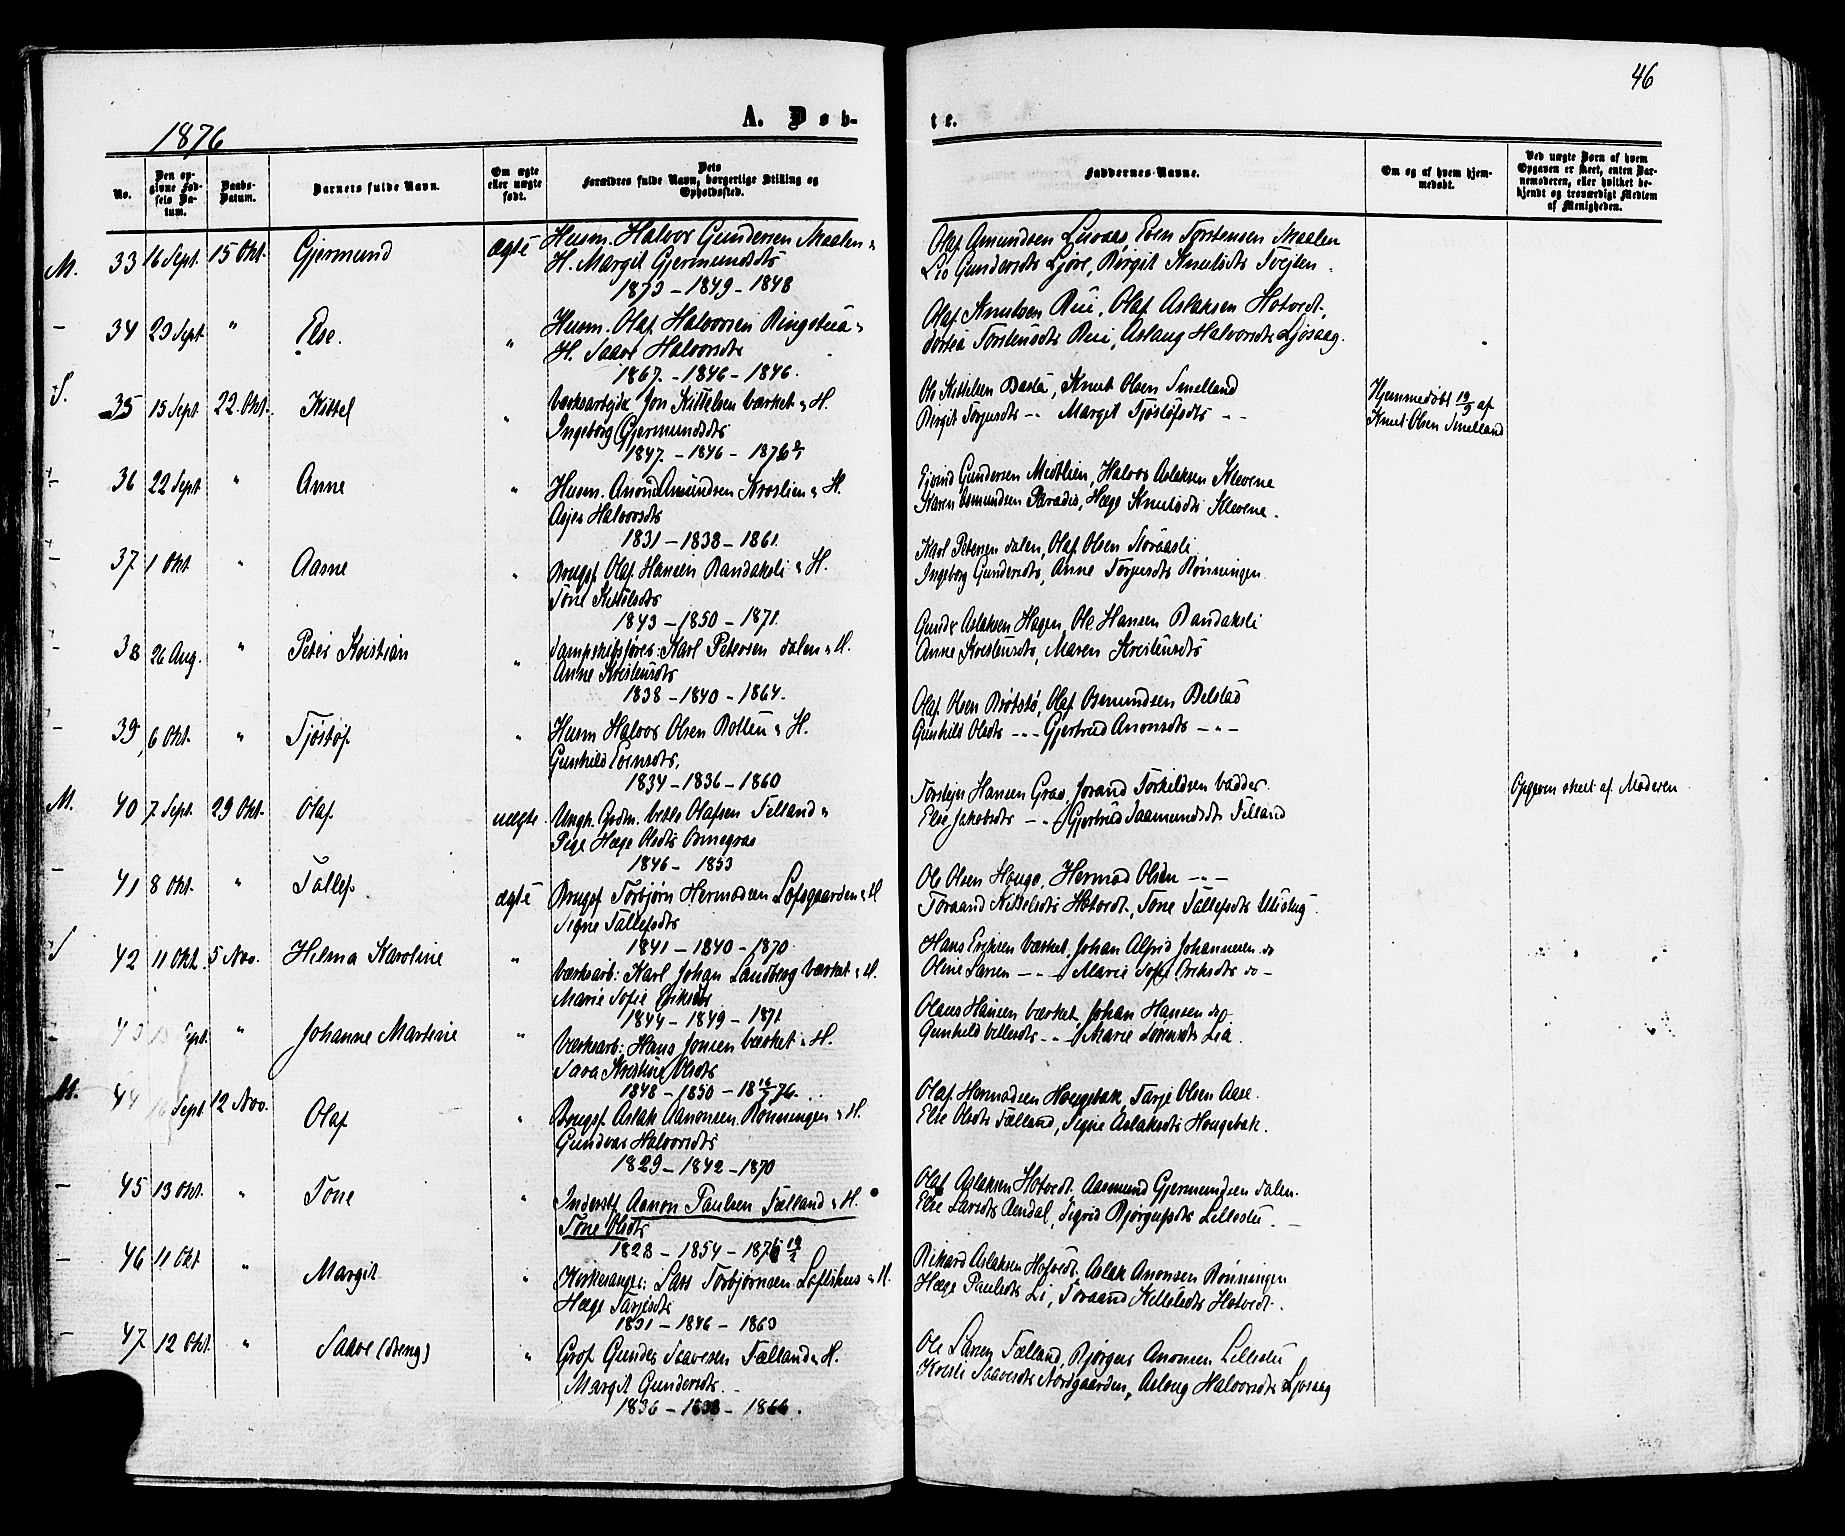 46
A. Døb-
te.
1876
No.
Den op-
givne Fød-
sels Da-
tum.
Daabs-
Datum.
Barnets fulde Navn.
Om ægte
eller uægte
født.
Dets
Forældres fulde Navn, borgerlige Stilling og
Opholdssted.
Faddernes Navne.
Om og af hvem hjem-
medøbt.
Ved uægte Børn af hvem
Opgaven er skeet, enten Bar-
nemoderen, eller hvilket be-
kjendt og troværdigt Medlem
af Menigheden.
M. 33 16 Sept. 15 Okt. Gjermund ægte Husm. Halvor Gundersen Maalen "
H. Margit Gjermundsdtr
1873 - 1849 - 1848
Olaf Amundsen Even Torstensen Maalen
Liv Gundersdtr Birgit Knutsdtr Tvejten
- 34 23 Sept. " Else. " Husm. Olaf Halvorsen Ringstua "
H. Saave Halvorsdtr
1867. - 1846 - 1846.
Olaf Knutsen Rui, Olaf Aslaksen Hotvedt.
Torstensdtr Rui, Aslaug Halvorsdtr Ljosaag.
S. 35 15 Sept 22. Okt. Kittel " Værksarbejd. Jon Kittelsen Værket " H.
Ingeborg Gjermundsdtr
1847. - 1846 - 1876
Ole Kittelsen Knut Olsen Smelland
Birgit Torjusdtr - " Margit Tjøstøfsdtr - -
Hjemmedøbt 19/9 af
Knut Olsen Smelland
- 36 22 Sept " Anne " Husm. Anund Amundsen Kroslien " H.
Halvorsdtr
1831 - 1838 - 1861.
Ejvind Gundersen Midtlien, Halvor Aslaksen Klevene
Karen Osmundsen Paradis, Hæge Knutsdtr Klevene.
- 37 1 Okt " Aasne " Brugsf. Olaf Hansen Bandaksli " H.
Tone Kittilsdtr
1843 - 1850 - 1871.
Karl Petersen Dalen, Olaf Olsen Storaasli
Ingeborg Gundersdtr, Anne Torjusdtr Rønningen
- 38 26 Aug. " Peter Kristian " Dampskibsfører: Karl Petersen Dalen " H.
Anne Kristensdtr
1838 - 1840 - 1864.
Gunder Aslaksen Hagen, Ole Hansen Bandaksli
Anne Kristensdtr, Maren Kristensdtr
- 39 6 Okt. " Tjøstøf " Husm Halvor Olsen Botten " H.
Gunhild Evensdtr.
1834 - 1836 - 1860
Olaf Olsen Olaf Osmundsen
Gunhild Olsdtr - " - Gjertrud Anonsdtr - " -
M. 40 7 Sept. 29 Okt. Olaf uægte Ungk. Olafsen Felland "
Pige Hæge Olsdtr
1846 - 1853
Torstejn Hansen Graa, Jorand Torkildsen Vadder
Else Jakobsdtr - " - Gjertrud Saamundsdtr Felland
Opgaven skeet af Moderen
- 41 8 Okt. " Tallef. ægte Brugsf Torbjørn Hermodsen Loftsgaarden " H
Signe Tallefsdtr
1841 - 1840 - 1870
Ole Olsen Haugo, Hermod Olsen - " -
Toraand Kittelsdtr Hotvedt., Tone Tallefsdtr
S 42 11 Okt. 5 Nov. Helma Karoline " Værksarb: Karl Johan Landberg Værket " H.
Marie Sofie Eriksdtr
1844 - 1849 - 1871
Hans Eriksen Værket, Johan Alfrid Johannesen do
Oline Larsen - " - Marie Sofie Eriksdtr do -
- 43 Sept. " Johanne Martine " Værksarb: Hans Jonsen Værket " H.
Sara Kristine Olsdtr
1848 - 1850 - 18 76.
Olaus Hansen Værket, Johan Hansen do
Gunhild - " - Marie Lia
M. 44 16 Sept 12 Nov. Olaf " Brugsf Aslak Aanonsen Rønningen " H.
Gundvor Halvorsdtr
1829 - 1842 - 1870
Olaf Hermodsen Haugebak, Tarje Olsen Aase.
Else Olsdtr Fælland, Signe Aslaksdtr Haugebak.
- 45 13 Okt. " Tone " Inderst Aanon Paulsen Fælland " H.
Tone Olsdtr
1828 - 1854 - 1876
Olaf Aslaksen Hotvedt. Aasmund Gjermundsen Dalen.
Else Larsdtr Aendal, Sigrid Bjørgufsdtr Lillestu. -
- 46 11 Okt " Margit " Kirkesanger: Lars Torbjørnsen Loftshus " H.
Hæge Tarjesdtr
1831 - 1846 - 1863
Rikard Aslaksen Hotvedt, Aslak Anonsen Rønningen
Hæge Paulsdtr Li, Toraand Kittelsdtr Hotvedt.
- 47 12 Okt. " Saave (Dreng) " Grof Gunder Saavesen Fælland " H.
Margit Gundersdtr
1836 - 1838 - 1866.
Ole Larsen Fælland, Bjørgus Anonsen Lillestu
Saavesdtr Nordgaarden, Aslaug Halvorsdtr Ljosaag